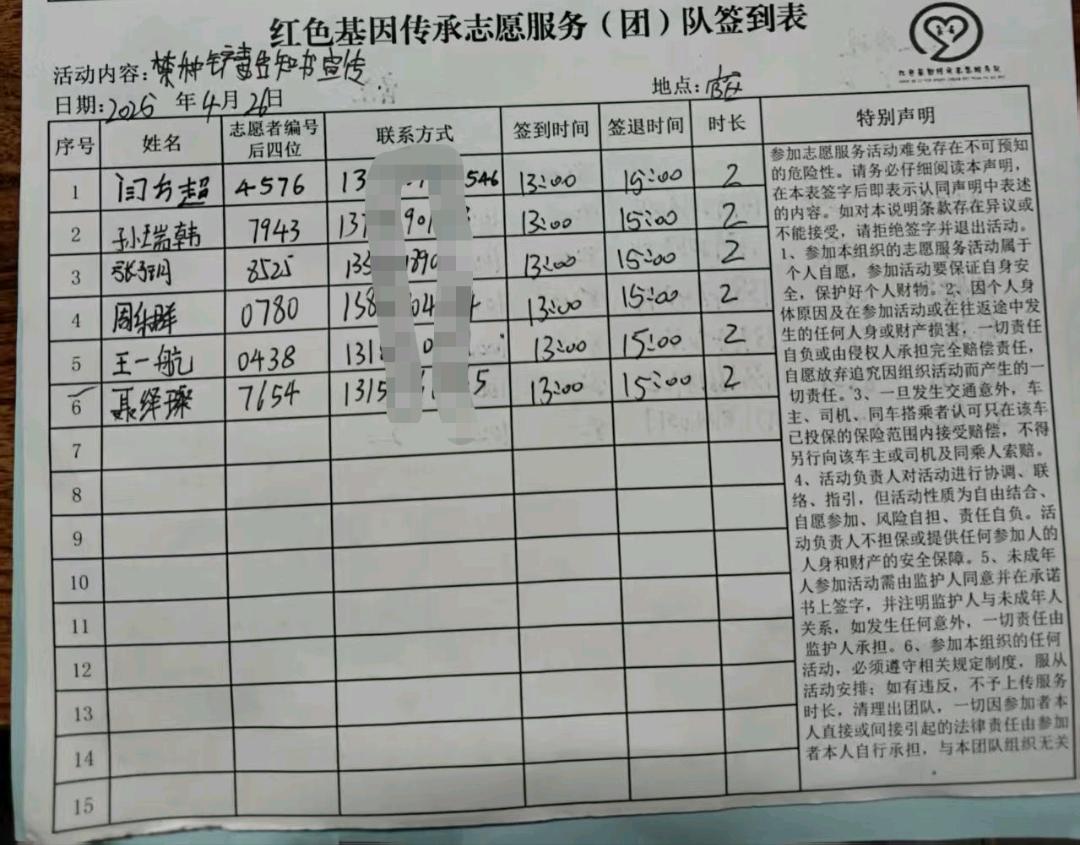 红色基因传承志愿服务（团）队签到表
活动内容：禁种铲毒告知书宣传
日期：2025 年 4 月 26 日 地点：
序号 姓名 志愿者编号后四位 联系方式 签到时间 签退时间 时长 特别声明
1 闫方超 4576 13 546 13:00 15:00 2
2 孙瑞韩 7943 137 90 13:00 15:00 2
3 张 8525 133 890 13:00 15:00 2
4 周 群 0780 158 04 4 13:00 15:00 2
5 王一航 0438 131 0 13:00 15:00 2
6 聂绎璨 7654 1315 5 13:00 15:00 2
7
8
9
10
11
12
13
14
15
参加志愿服务活动难免存在不可预知
的危险性。请务必仔细阅读本声明，
在本表签字后即表示认同声明中表述
的内容。如对本说明条款存在异议或
不能接受，请拒绝签字并退出活动。
1、参加本组织的志愿服务活动属于
个人自愿，参加活动要保证自身安
全，保护好个人财物。2、因个人身
体原因及在参加活动或在往返途中发
生的任何人身或财产损害，一切责任
自负或由侵权人承担完全赔偿责任，
自愿放弃追究因组织活动而产生的一
切责任。3、一旦发生交通意外，车
主、司机、同车搭乘者认可只在该车
已投保的保险范围内接受赔偿，不得
另行向该车主或司机及同乘人索赔。
4、活动负责人对活动进行协调、联
络、指引，但活动性质为自由结合、
自愿参加、风险自担、责任自负。活
动负责人不担保或提供任何参加人的
人身和财产的安全保障。5、未成年
人参加活动需由监护人同意并在承诺
书上签字，并注明监护人与未成年人
关系，如发生任何意外，一切责任由
监护人承担。6、参加本组织的任何
活动，必须遵守相关规定制度，服从
活动安排；如有违反，不予上传服务
时长，清理出团队，一切因参加者本
人直接或间接引起的法律责任由参加
者本人自行承担，与本团队组织无关